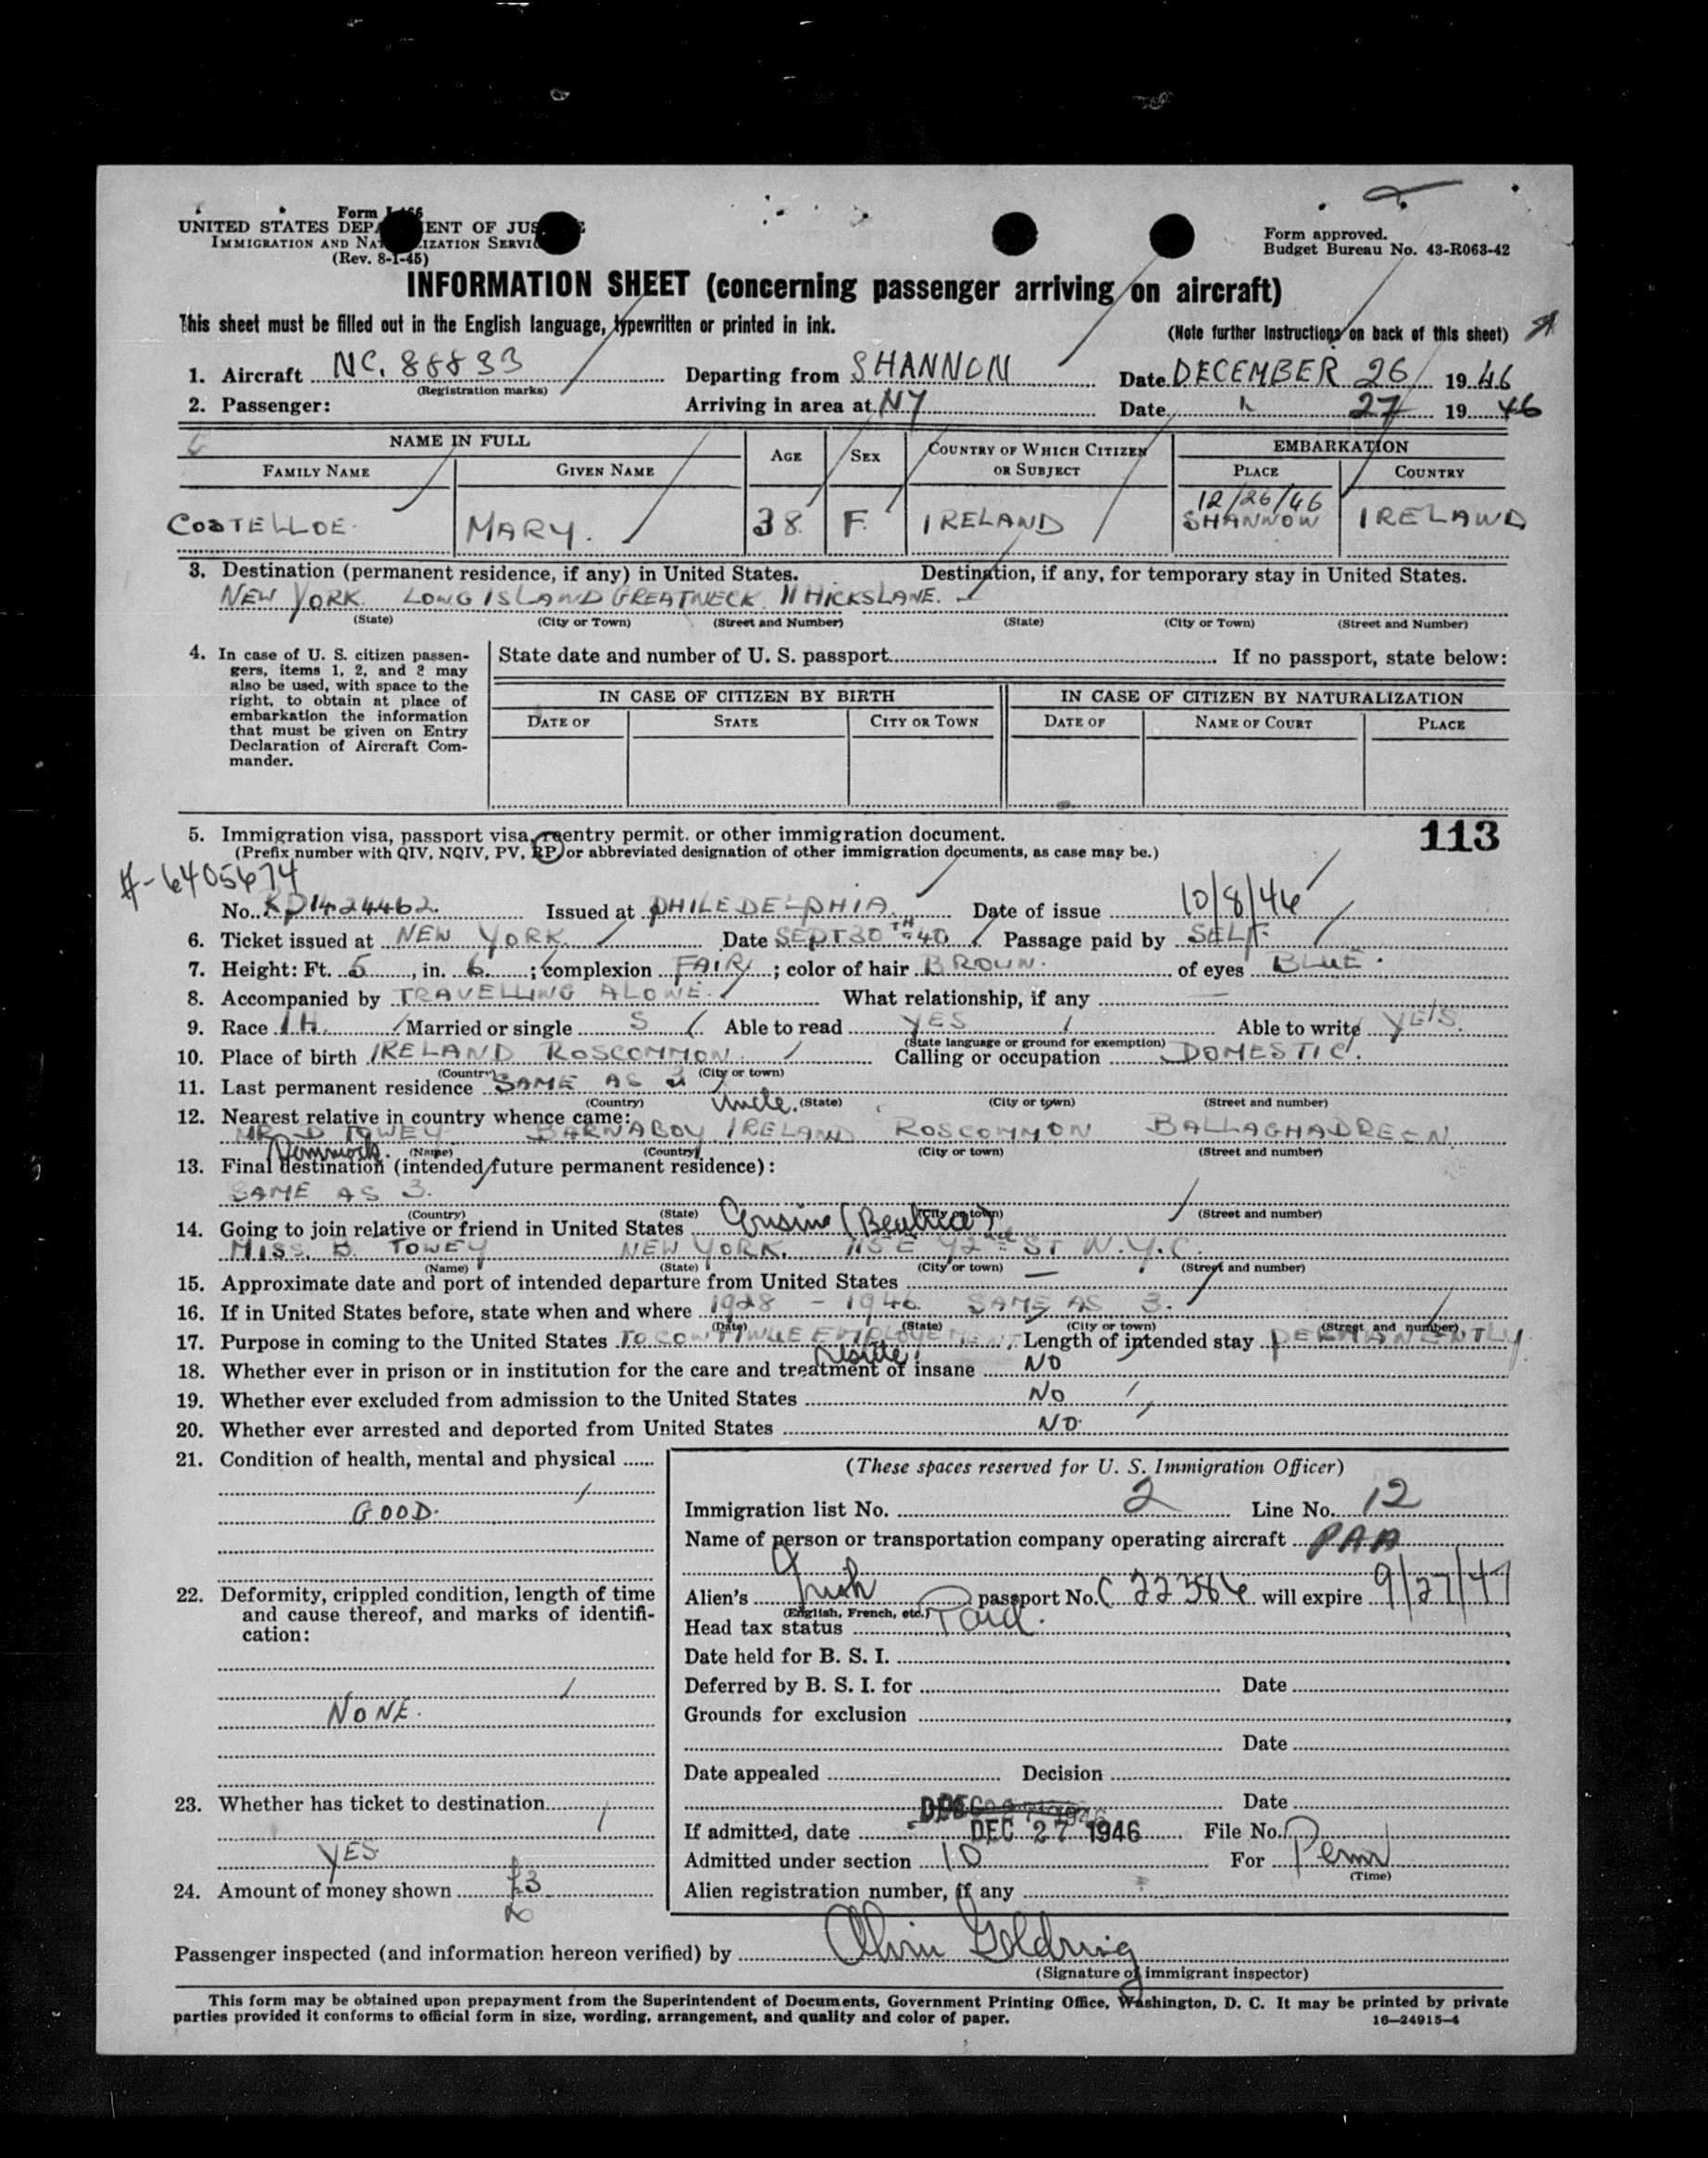 Form I-466
UNITED STATES DEPARTMENT OF JUSTICE
IMMIGRATION AND NATURALIZATION SERVICE
(Rev. 8-1-45)
Form approved.
Budget Bureau No. 43-R063-42
INFORMATION SHEET (concerning passenger arriving on aircraft)
This sheet must be filled out in the English language, typewritten or printed in ink.
(Note further instructions on back of this sheet)
1. Aircraft NC. 88833 Departing from SHANNON Date DECEMBER 26 1946
(Registration marks)
2. Passenger: Arriving in area at NY Date " 27 1946
NAME IN FULL AGE SEX COUNTRY OF WHICH CITIZEN OR SUBJECT EMBARKATION
FAMILY NAME GIVEN NAME PLACE COUNTRY
12/26/46
COSTELLOE. MARY. 38 F. IRELAND SHANNON IRELAND
3. Destination (permanent residence, if any) in United States. Destination, if any, for temporary stay in United States.
NEW YORK LONG ISLAND GREATNECK 11 HICKS LANE.
(State) (City or Town) (Street and Number) (State) (City or Town) (Street and Number)
4. In case of U. S. citizen passengers, items 1, 2, and 3 may also be used, with space to the right, to obtain at place of embarkation the information that must be given on Entry Declaration of Aircraft Commander.
State date and number of U. S. passport If no passport, state below:
IN CASE OF CITIZEN BY BIRTH IN CASE OF CITIZEN BY NATURALIZATION
DATE OF STATE CITY OR TOWN DATE OF NAME OF COURT PLACE
113
5. Immigration visa, passport visa, reentry permit, or other immigration document.
(Prefix number with QIV, NQIV, PV, RP, or abbreviated designation of other immigration documents, as case may be.)
#-6405674
No. RP1424462 Issued at PHILEDELPHIA. Date of issue 10/8/46
6. Ticket issued at NEW YORK Date SEPT 30TH-40 Passage paid by SELF.
7. Height: Ft. 5, in. 6; complexion FAIR; color of hair BROUN. of eyes BLUE.
8. Accompanied by TRAVELLING ALONE. What relationship, if any —
9. Race IH. Married or single S Able to read YES Able to write YES.
(State language or ground for exemption)
10. Place of birth IRELAND ROSCOMMON. Calling or occupation DOMESTIC.
(Country) (City or town)
11. Last permanent residence SAME AS 3
(Country) (State) (City or town) (Street and number)
Uncle.
12. Nearest relative in country whence came:
MR D TOWEY BARNABOY IRELAND ROSCOMMON BALLAGHADREEN
(Name) (Country) (City or town) (Street and number)
13. Final destination (intended future permanent residence):
SAME AS 3.
(Country) (State) (City or town) (Street and number)
14. Going to join relative or friend in United States Cousin (Beatrice)
MISS. B. TOWEY NEW YORK. 115 E 92nd ST N.Y.C.
(Name) (State) (City or town) (Street and number)
15. Approximate date and port of intended departure from United States —
16. If in United States before, state when and where 1928 - 1946 SAME AS 3.
(Date) (State) (City or town) (Street and number)
17. Purpose in coming to the United States TO CONTINUE EMPLOYEMENT. Length of intended stay PERMANENTLY
reside.
18. Whether ever in prison or in institution for the care and treatment of insane NO
19. Whether ever excluded from admission to the United States NO
20. Whether ever arrested and deported from United States NO.
21. Condition of health, mental and physical
GOOD.
22. Deformity, crippled condition, length of time and cause thereof, and marks of identification:
NONE.
23. Whether has ticket to destination
YES.
24. Amount of money shown £3
(These spaces reserved for U. S. Immigration Officer)
Immigration list No. 2 Line No. 12
Name of person or transportation company operating aircraft PAA
Alien's Irish passport No. C 22386 will expire 9/27/47
(English, French, etc.)
Head tax status Paid.
Date held for B. S. I.
Deferred by B. S. I. for Date
Grounds for exclusion
Date
Date appealed Decision
Date
If admitted, date DEC 27 1946 File No.
Admitted under section 10 For Perm
(Time)
Alien registration number, if any
Passenger inspected (and information hereon verified) by Alvin Goldring
(Signature of immigrant inspector)
This form may be obtained upon prepayment from the Superintendent of Documents, Government Printing Office, Washington, D. C. It may be printed by private
parties provided it conforms to official form in size, wording, arrangement, and quality and color of paper. 16—24915-4